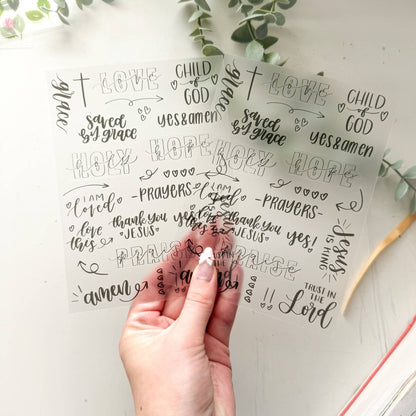 grace
LOVE
CHILD
of
GOD
saved
by grace
yes & amen
HOLY
HOPE
-PRAYERS-
I AM
loved
love
this
thank you
JESUS
yes
PRAISE
amen
grace
LOVE
CHILD
of
GOD
saved
by grace
yes & amen
HOLY
HOPE
-PRAYERS-
I AM
thank you
JESUS
yes!
Jesus
IS KING
PRAISE
TRUST IN
THE
Lord